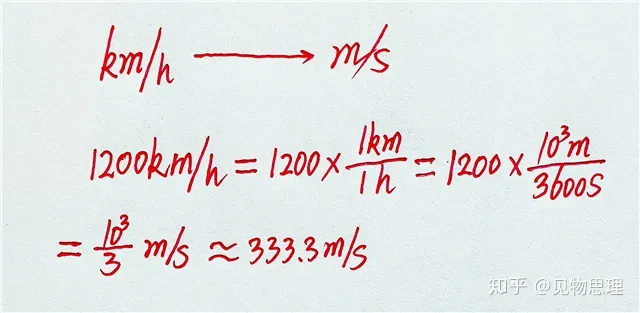 km/h ⟶ m/s
1200km/h = 1200 × \frac{1km}{1h} = 1200 × \frac{10³m}{3600s}
= \frac{10³}{3} m/s ≈ 333.3m/s
知乎 @见物思理